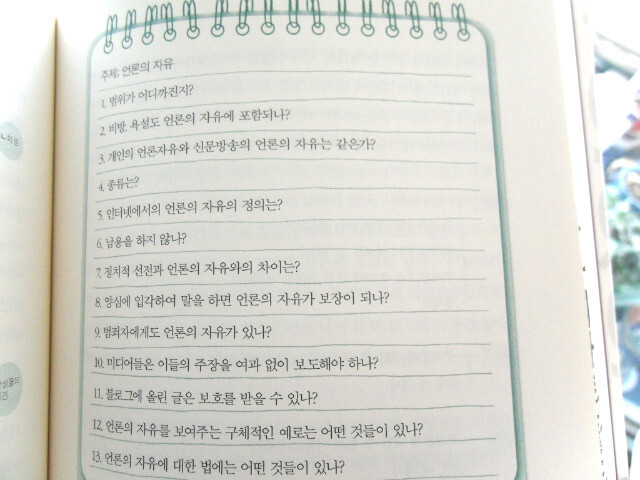 주제: 언론의 자유
1. 범위가 어디까진지?
2. 비방, 욕설도 언론의 자유에 포함되나?
3. 개인의 언론자유와 신문방송의 언론의 자유는 같은가?
4. 종류는?
5. 인터넷에서의 언론의 자유의 정의는?
6. 남용을 하지 않나?
7. 정치적 선전과 언론의 자유와의 차이는?
8. 양심에 입각하여 말을 하면 언론의 자유가 보장이 되나?
9. 범죄자에게도 언론의 자유가 있나?
10. 미디어들은 이들의 주장을 여과 없이 보도해야 하나?
11. 블로그에 올린 글은 보호를 받을 수 있나?
12. 언론의 자유를 보여주는 구체적인 예로는 어떤 것들이 있나?
13. 언론의 자유에 대한 법에는 어떤 것들이 있나?